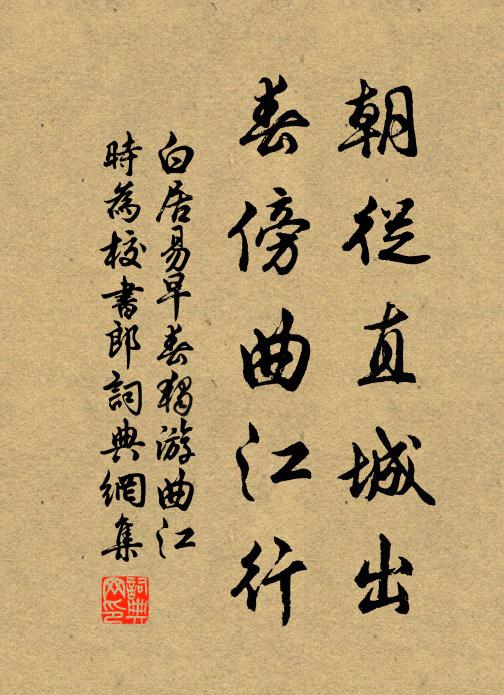 朝從直城出
春傍曲江行
白居易早春独游曲江
時為校書郎詞典網集
詞典网印